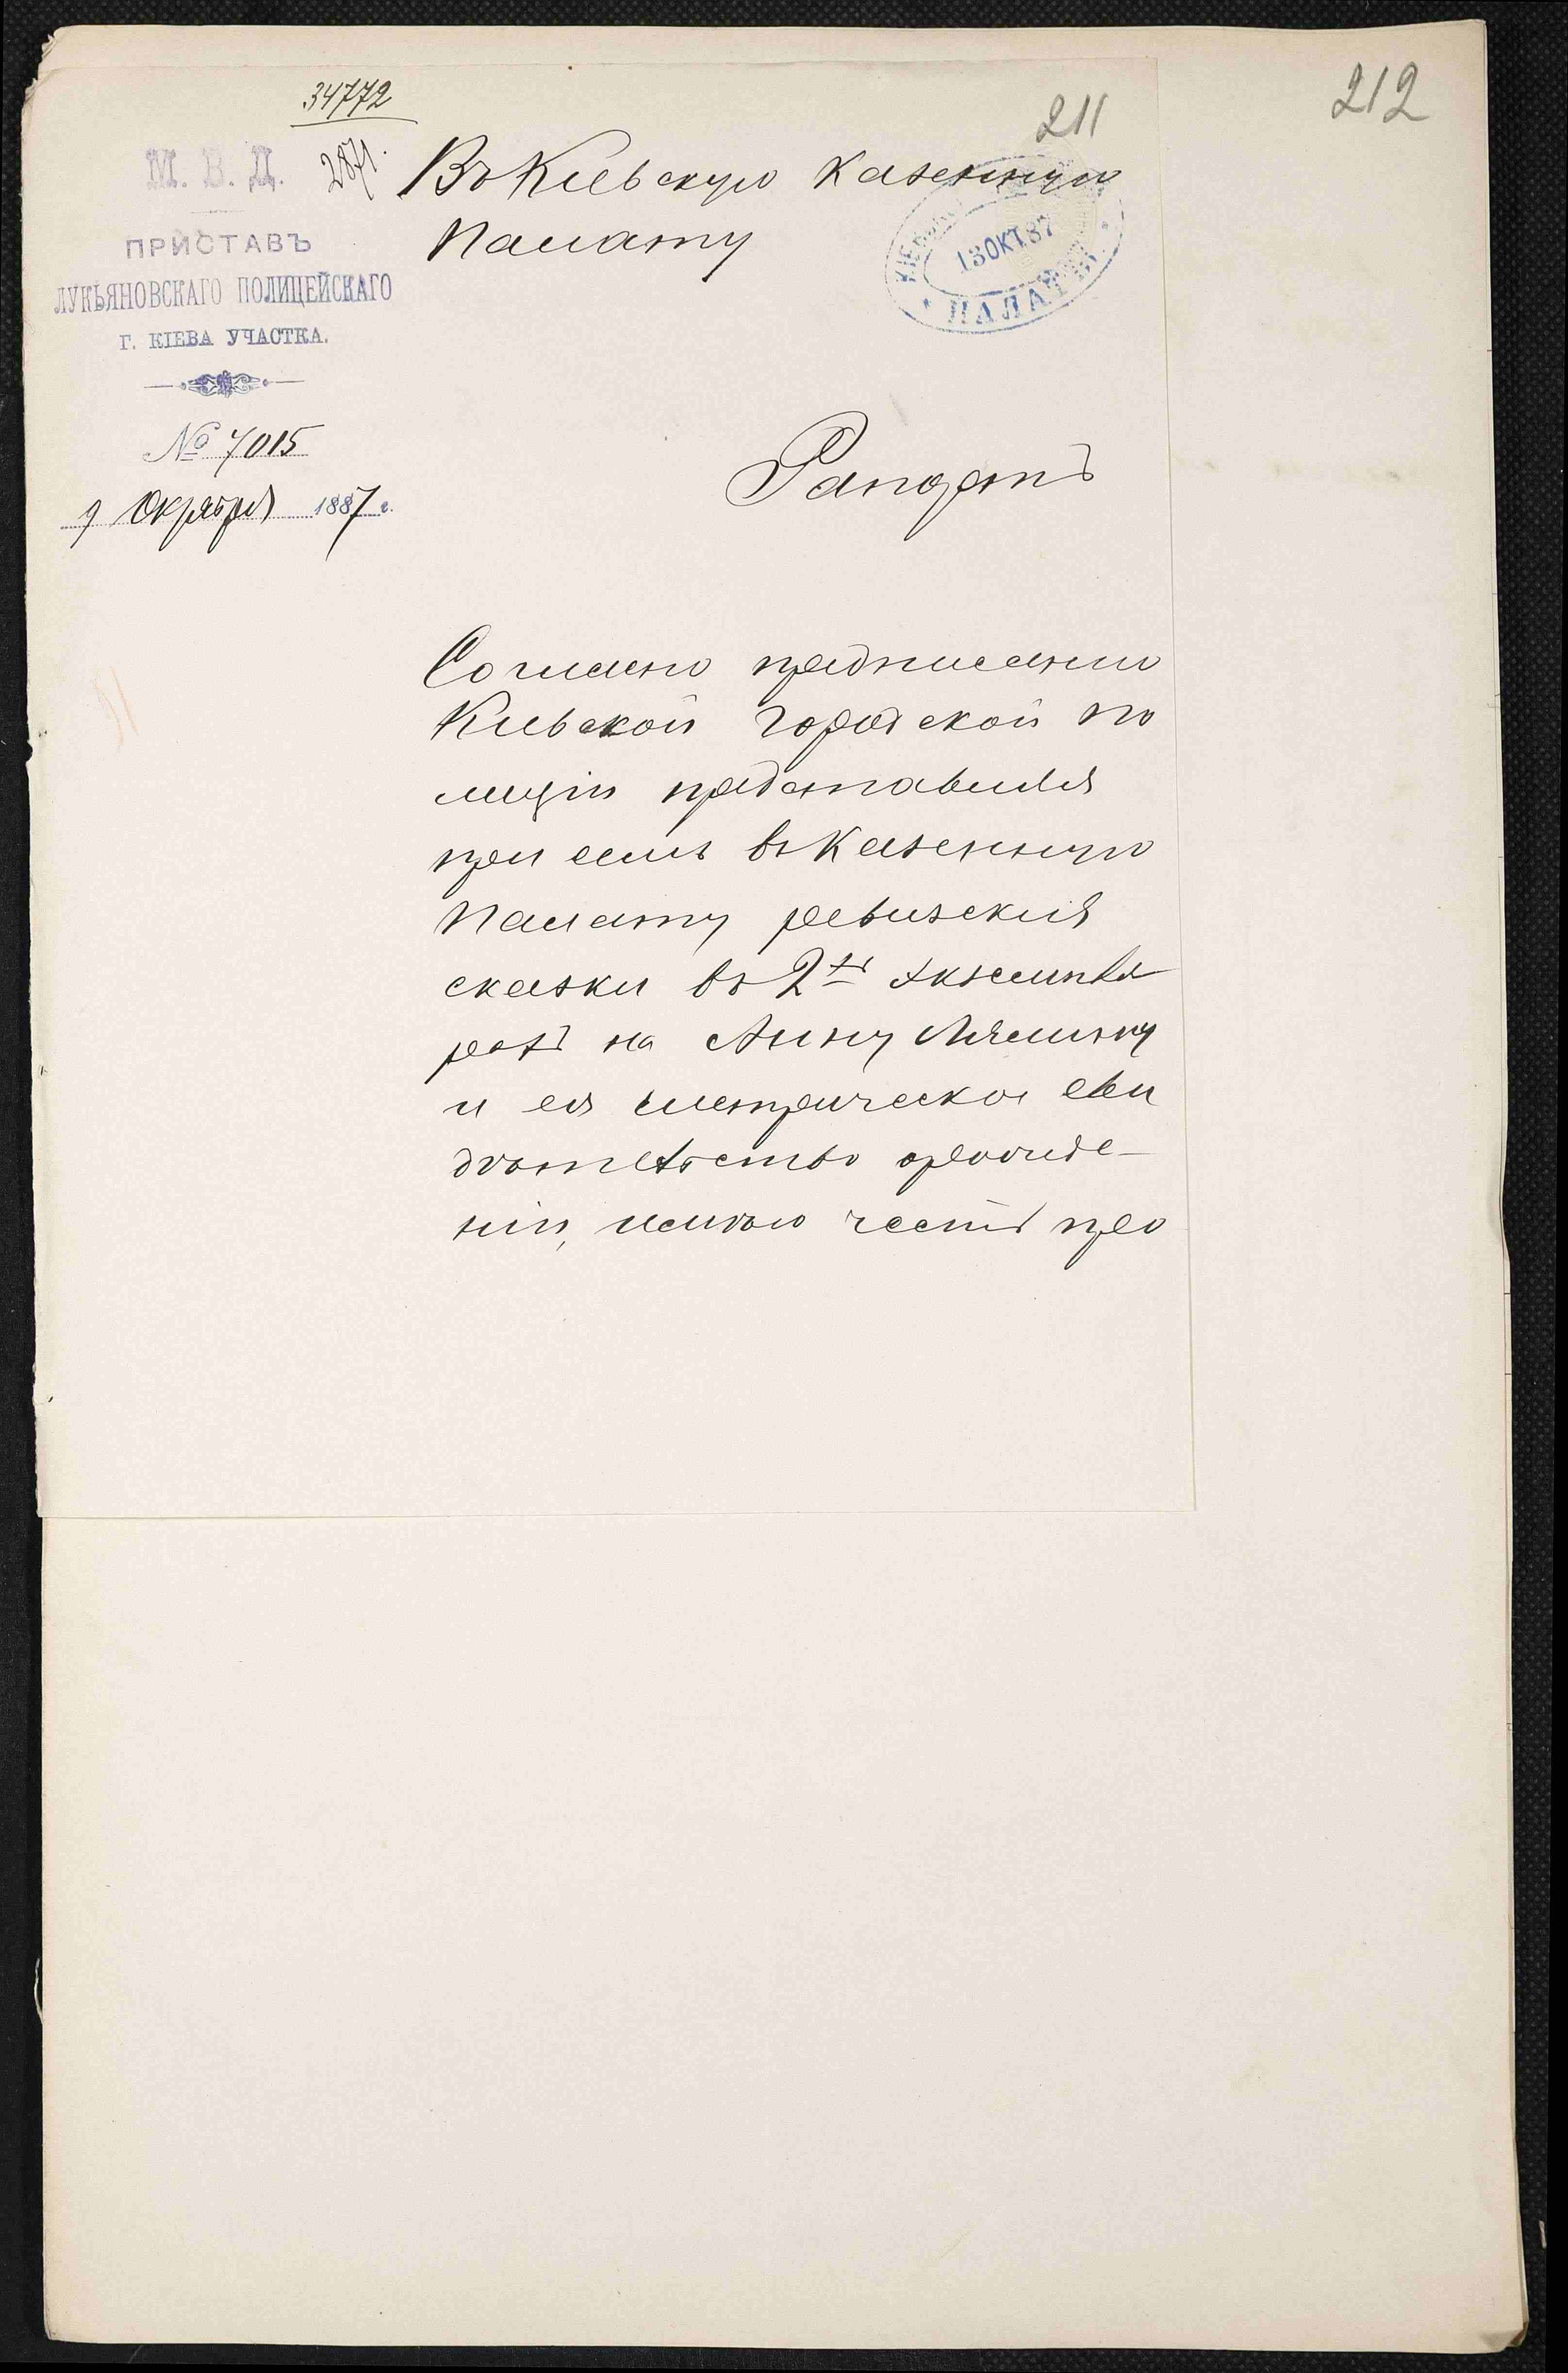 34772
2871.
211
212
М. В. Д.
ПРИСТАВЪ
ЛУКЬЯНОВСКАГО ПОЛИЦЕЙСКАГО
Г. КІЕВА УЧАСТКА.
№ 7015
9 Октября 1887 г.
Въ Кіевскую Казенную
Палату
13 ОКТ. 87
ПАЛАТЫ
Рапортъ
Согласно предписанію
Кіевской Городской по
лиціи представляя
при семъ въ Казенную
Палату ревизскія
сказки въ 2хъ экземпля
рахъ на Анну
и ея метрическое сви
дѣтельство о рожде-
ніи, имѣю честь про